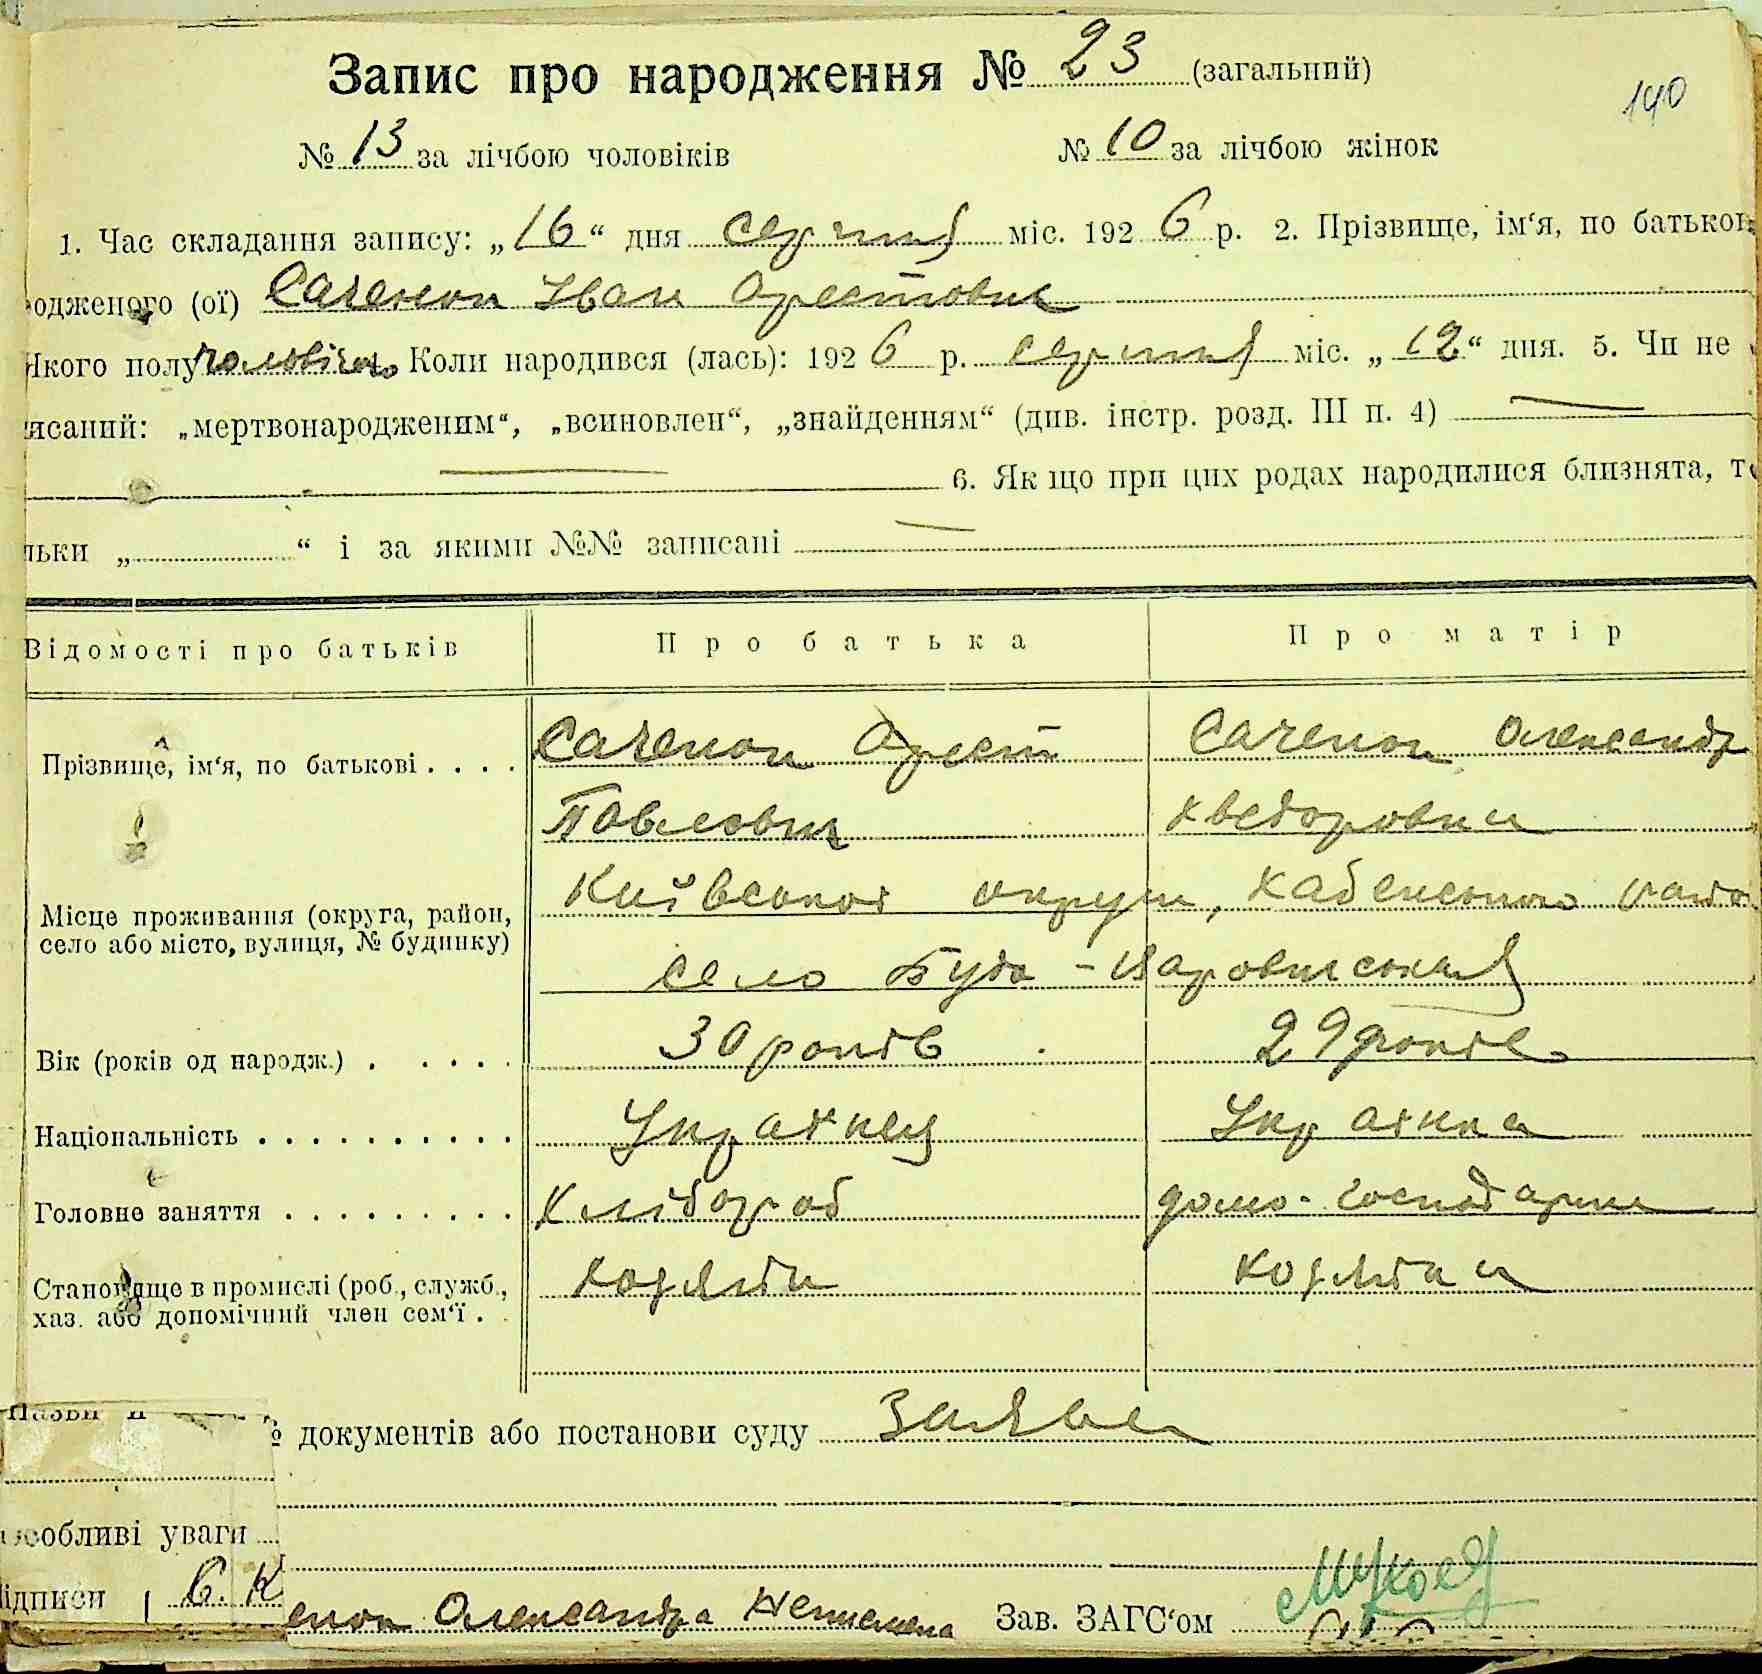 Запис про народження № 23 (загальний)
140
№ 13 за лічбою чоловіків № 10 за лічбою жінок
1. Час складання запису: „16“ дня серпня міс. 1926 р. 2. Прізвище, ім‘я, по батьков
одженого (ої) Саченок Іван Орестович
якого полу чоловічого Коли народився (лась): 1926 р. серпня міс. „12“ дня. 5. Чи не
исаний: „мертвонародженим“, „всиновлен“, „знайденням“ (див. інстр. розд. III п. 4) —
— 6. Як що при цих родах народилися близнята, т
льки „ “ і за якими №№ записані —
Відомості про батьків Про батька Про матір
Прізвище, ім‘я, по батькові . . . . Саченок Орест Саченок Олександр
Павлович Хведоровна
Місце проживання (округа, район,
село або місто, вулиця, № будинку)
Київської округи, Хабенського райо
село Буда - Варовическая
Вік (років од народж.) . . . . . 30 років 29 років
Національність . . . . . . . . . . Українец Українка
Головне заняття . . . . . . . . . Хлібороб домо-господарка
Становище в промислі (роб., служб.,
хаз. або допомічний член сем‘ї . . хозяїн хозяїка
Назви и № документів або постанови суду Заява
особливі уваги
ідписи С. К енок Олександра Зав. ЗАГС‘ом